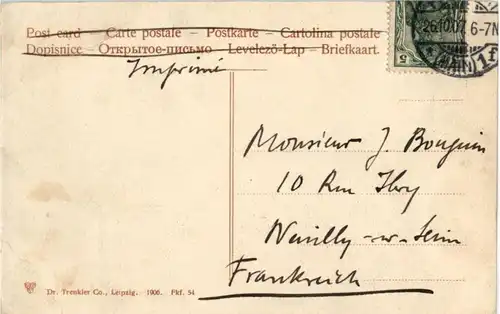 Post card – Carte postale – Postkarte – Cartolina postale
Dopisnice – Открытое-письмо – Levelező-Lap – Briefkaart.
Imprimé
26.10.07. 6-7N
5
Monsieur J.
10 Rue
Neuilly-s-Seine
Frankreich
Dr. Trenkler Co., Leipzig. 1906. Pkf. 54